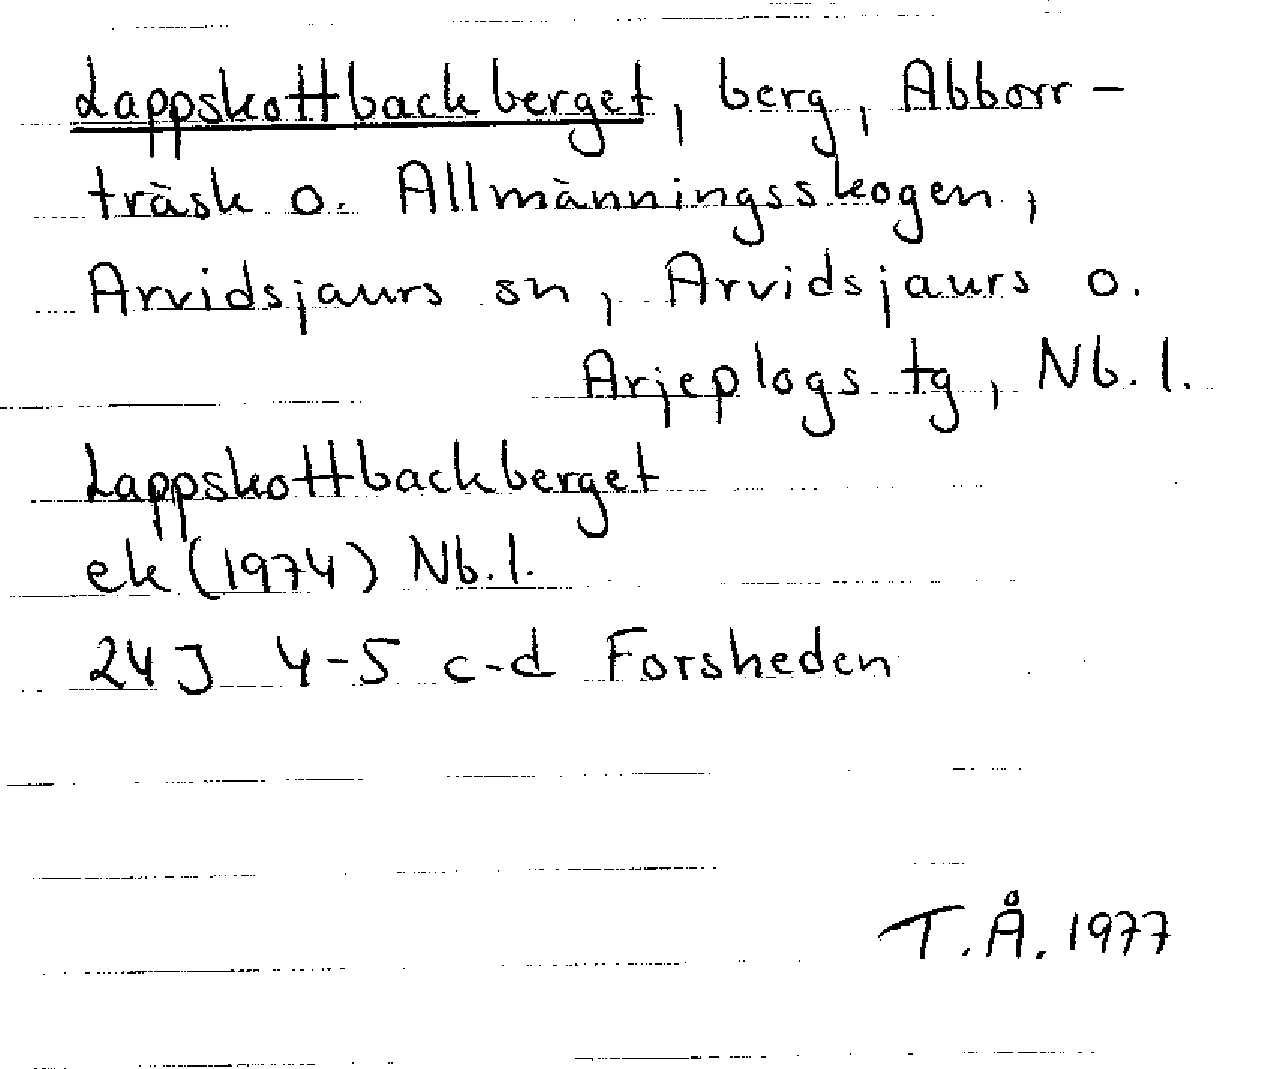 Lappskottbackberget, berg, Abborr-
träsk o. Allmänningsskogen,
Arvidsjaurs sn, Arvidsjaurs o.
Arjeplogs tg, Nb. l.
Lappskottbackberget
ek (1974) Nb. l.
24J 4-5 c-d Forsheden
T.Å. 1977